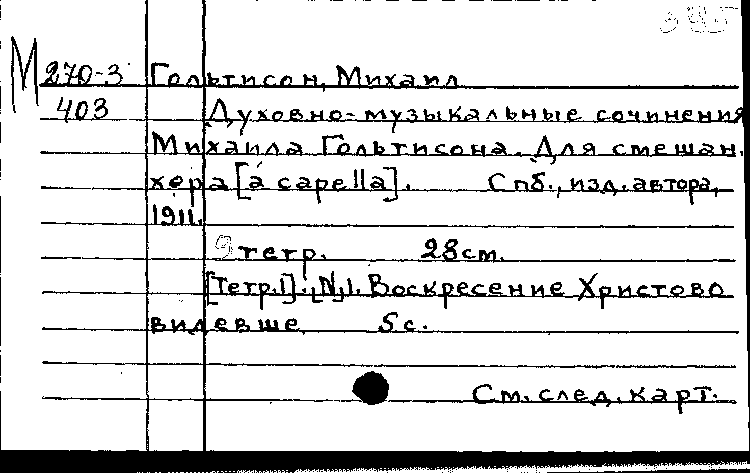 395
М 270-3 Гольтисон, Михаил
403 Духовно-музыкальные сочинения
Михаила Гольтисона. Для смешан.
хора [a capella]. Спб., изд. автора,
1911.
9 тетр. 28 см.
[Тетр.1]: [N]1. Воскресение Христово
видевше 5 с.
См. след. карт.